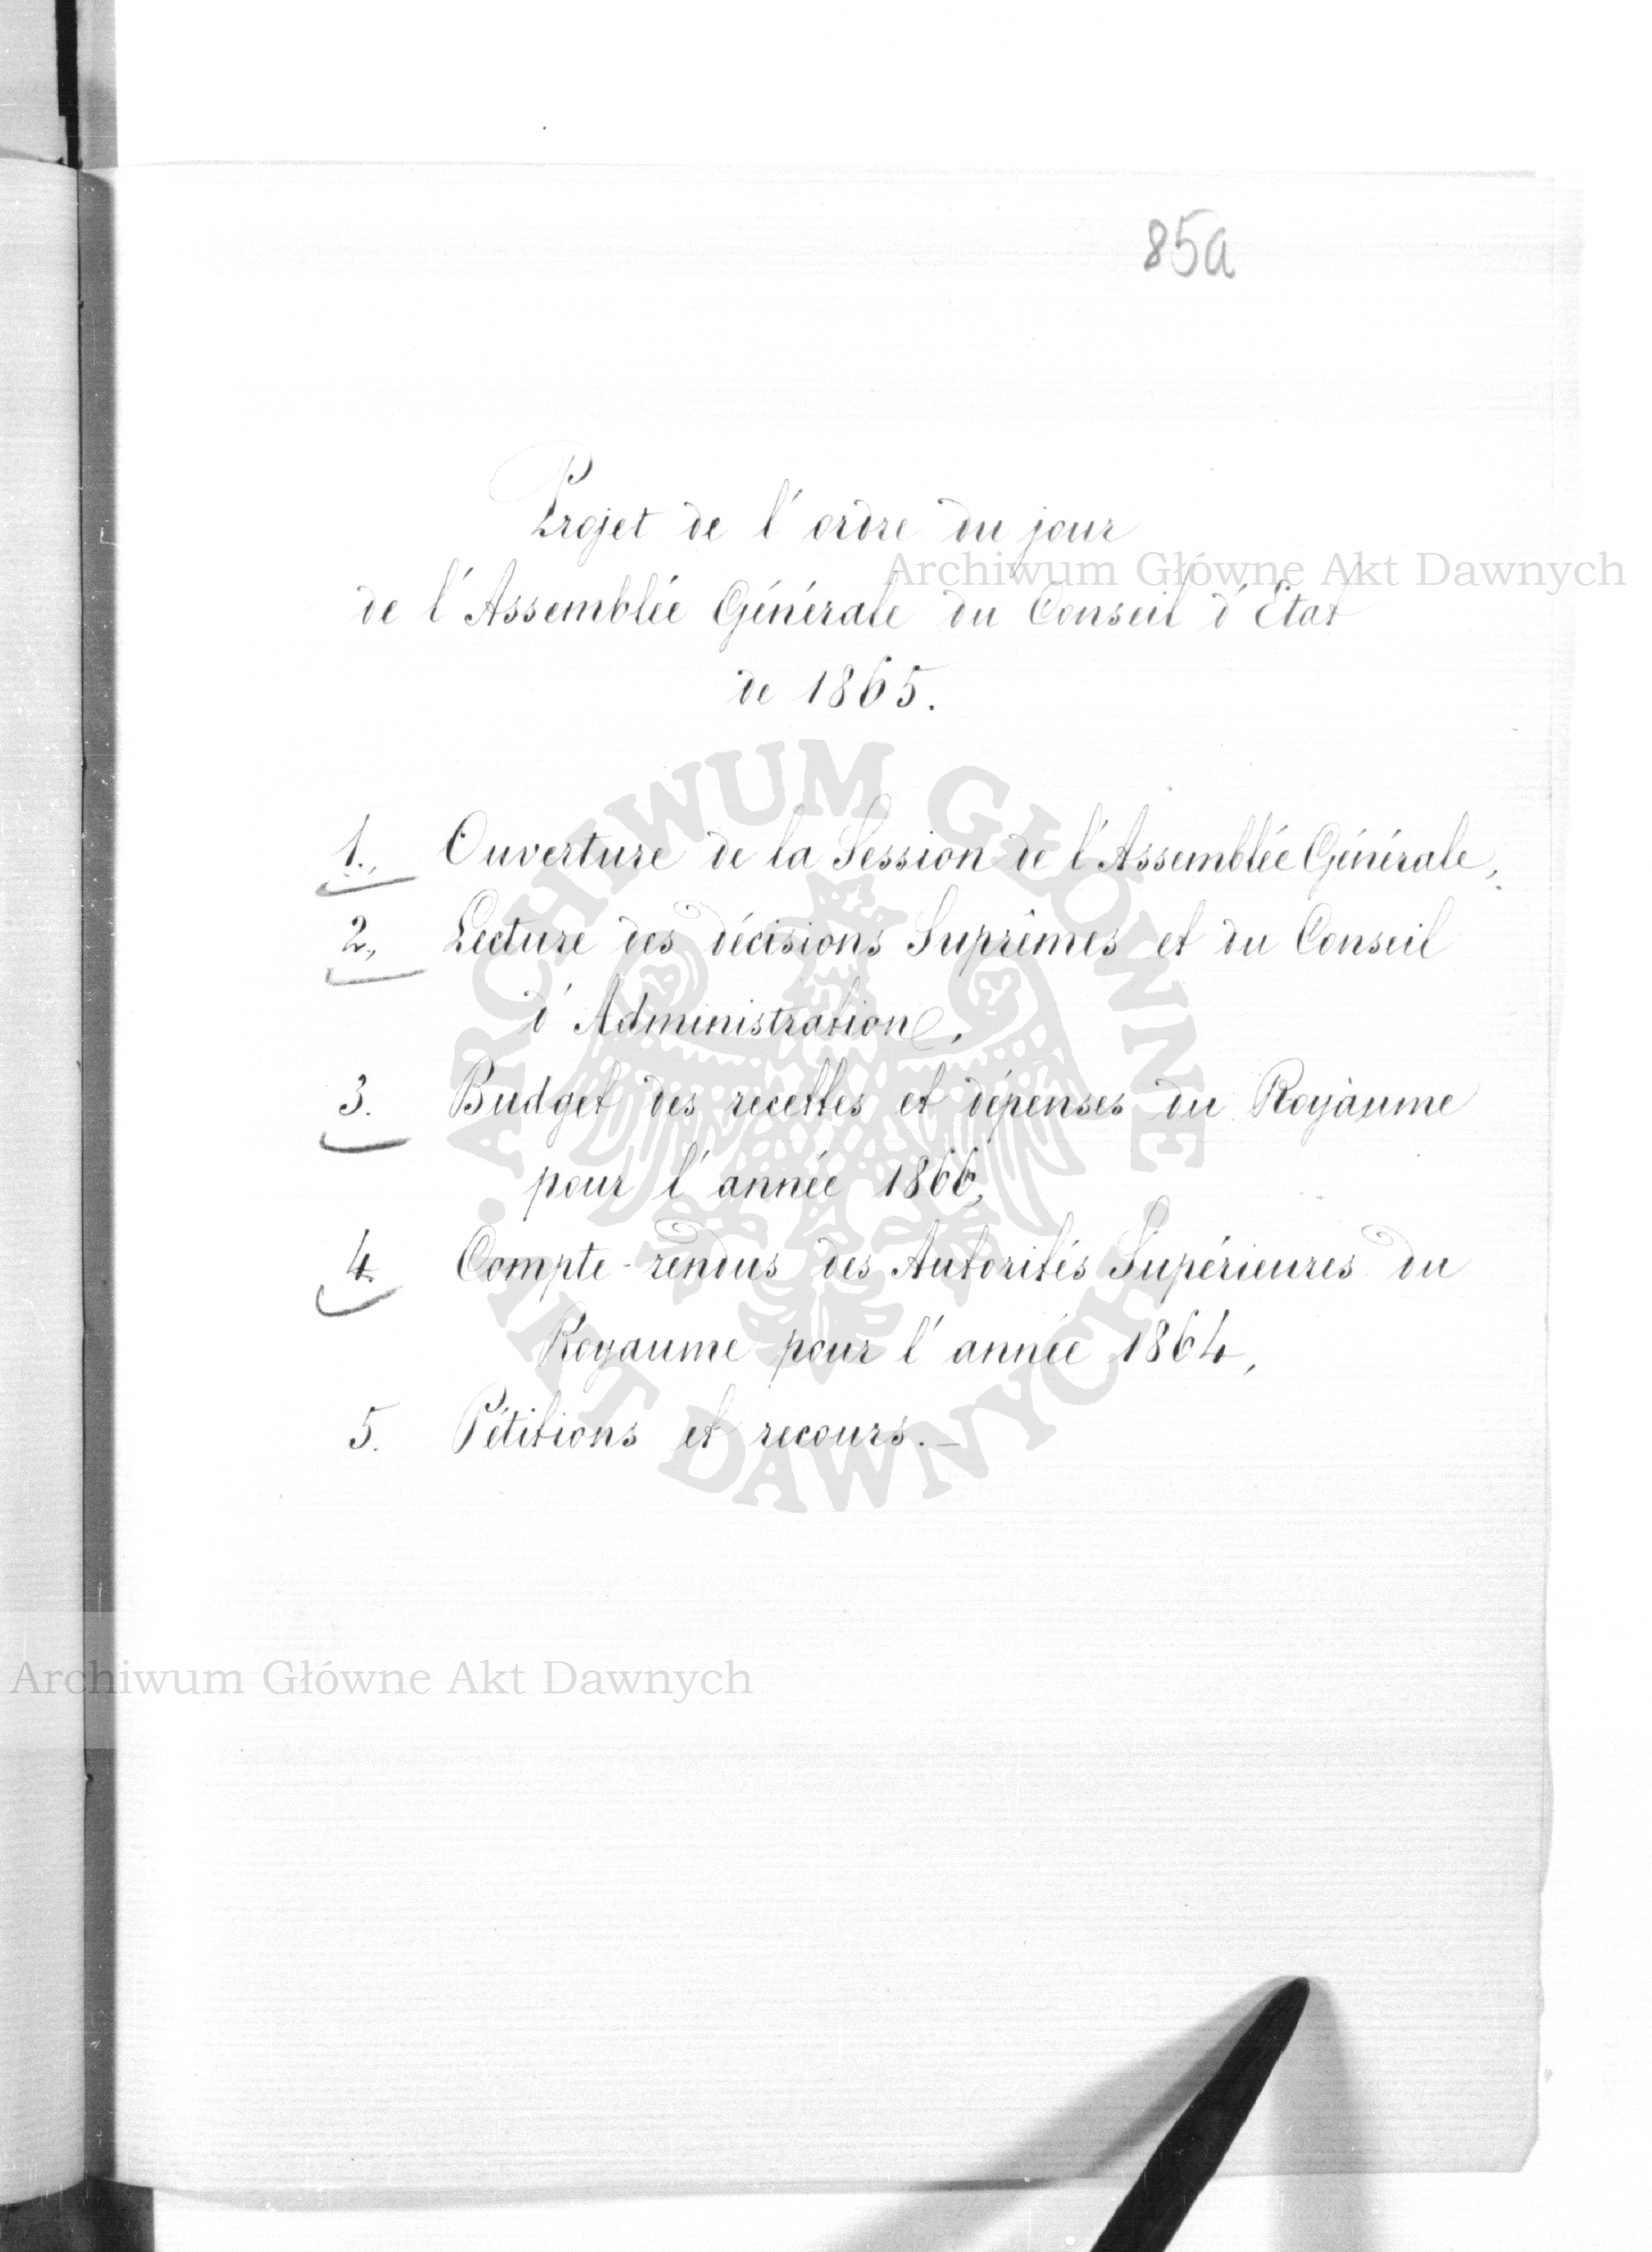 85a
Projet de l'ordre du jour
Archiwum Główne Akt Dawnych
de l'Assemblée Générale du Conseil d'Etat
de 1865.
ARCHIWUM GŁÓWNE AKT DAWNYCH
1., Ouverture de la Session de l'Assemblée Générale,
2., Lecture des décisions Suprêmes et du Conseil
d'Administration,
3. Budget des recettes et dépenses du Royaume
pour l'année 1866,
4. Compte-rendus des Autorités Supérieures du
Royaume pour l'année 1864,
5. Pétitions et recours.—
Archiwum Główne Akt Dawnych